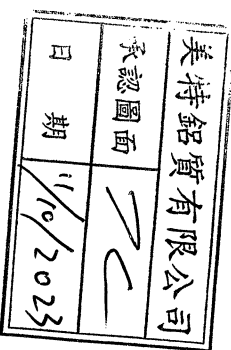 美特鋁質有限公司
承認圖面
日期 11/10/2023